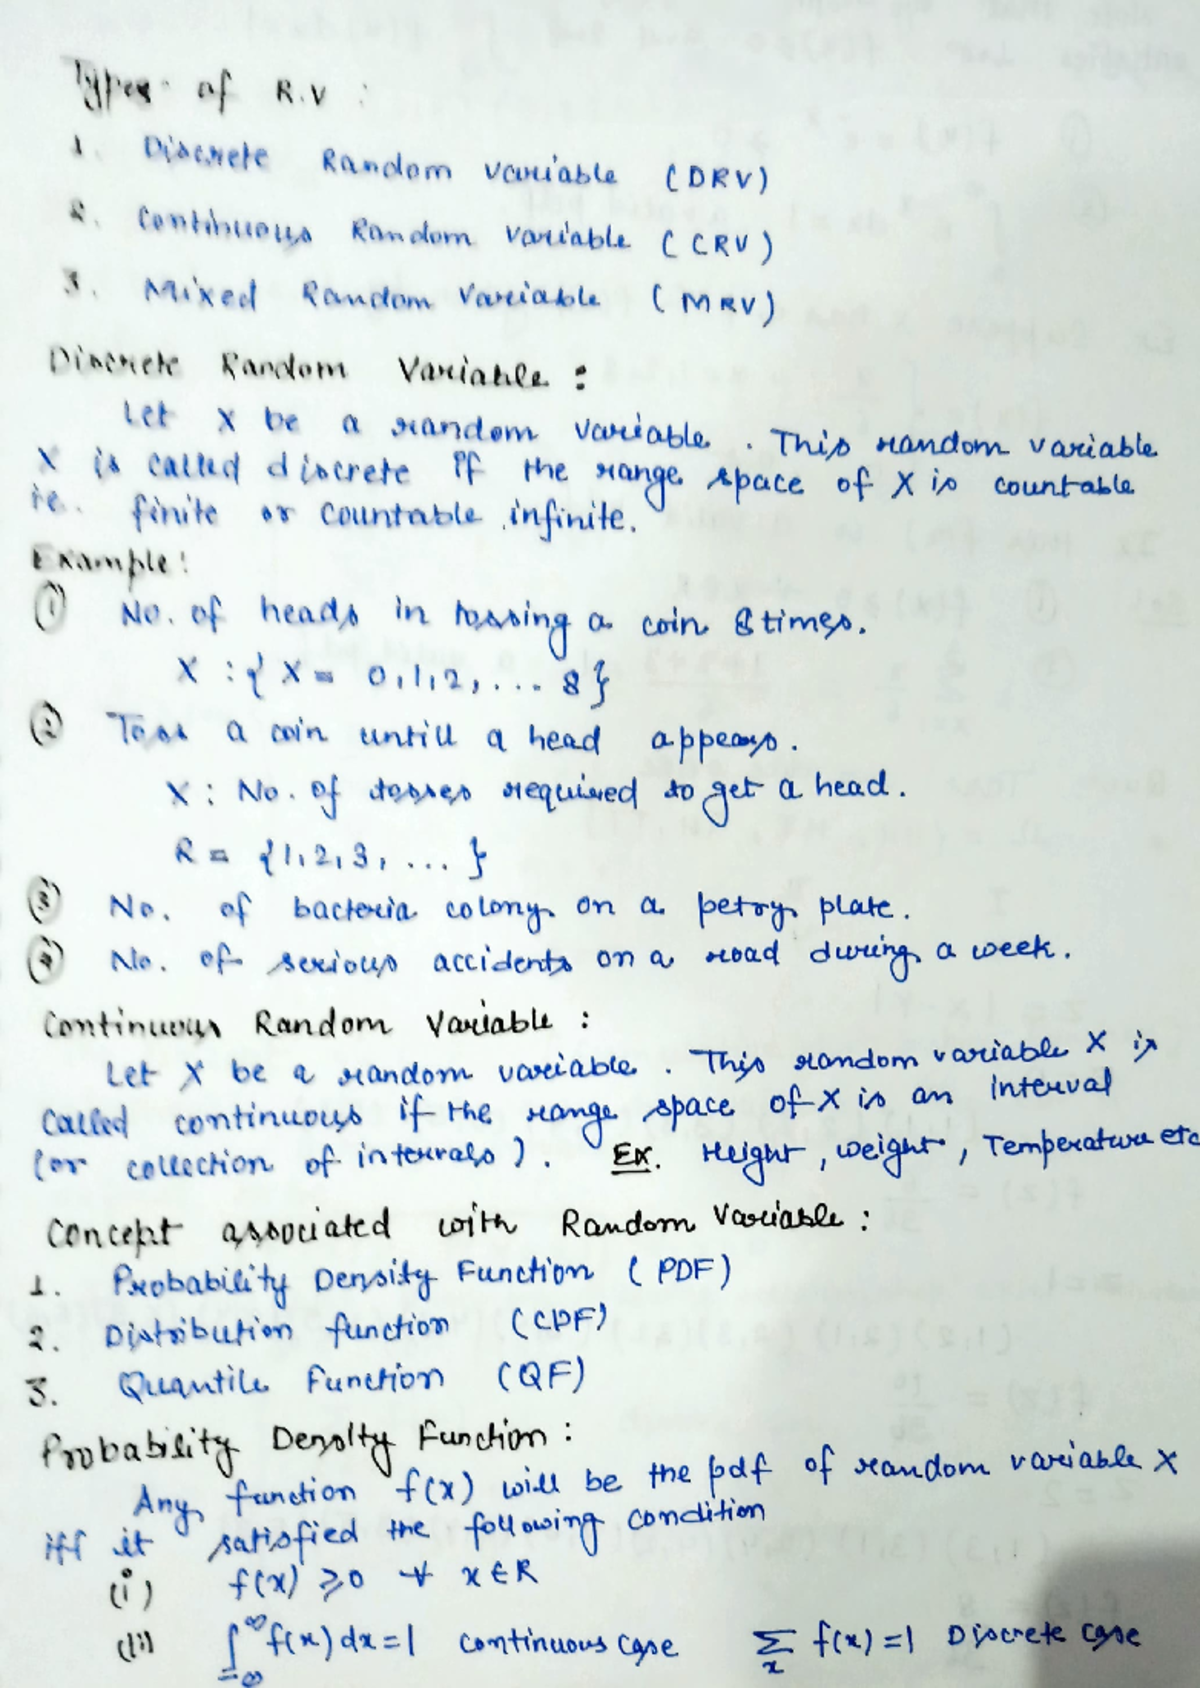 Types of R.V :
1. Discrete Random variable (DRV)
2. Continuous Random variable (CRV)
3. Mixed Random Variable (MRV)
Discrete Random Variable :
Let X be a random variable. This random variable
X is called discrete if the range space of X is countable
i.e. finite or countable infinite.
Example:
① No. of heads in tossing a coin 8 times.
X : { X = 0,1,2, ... 8 }
② Toss a coin untill a head appears.
X : No. of tosses required to get a head.
R = {1,2,3, ... }
③ No. of bacteria colony on a petry plate.
④ No. of serious accidents on a road during a week.
Continuous Random Variable :
Let X be a random variable. This random variable X is
called continuous if the range space of X is an interval
(or collection of intervals). Ex. Height, weight, Temperature etc
Concept associated with Random Variable :
1. Probability Density Function (PDF)
2. Distribution function (CDF)
3. Quantile Function (QF)
Probability Density Function :
Any function f(x) will be the pdf of random variable X
iff it satisfied the following condition
(i) f(x) ≥ 0 ∀ x ∈ R
(ii) ∫_{-∞}^{∞} f(x) dx = 1 continuous case Σ_x f(x) = 1 Discrete case